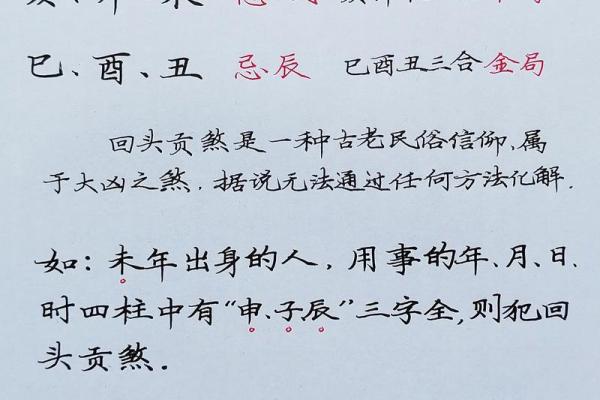 巳、酉、丑 忌辰 巳酉丑三合金局
回头贡煞是一种古老民俗信仰、属
于大凶之煞．据说无法通过任何方法化解．
如：未年出身的人，用事的年、月、日、
时四柱中有“申、子、辰”三字全，则犯回
头贡煞．